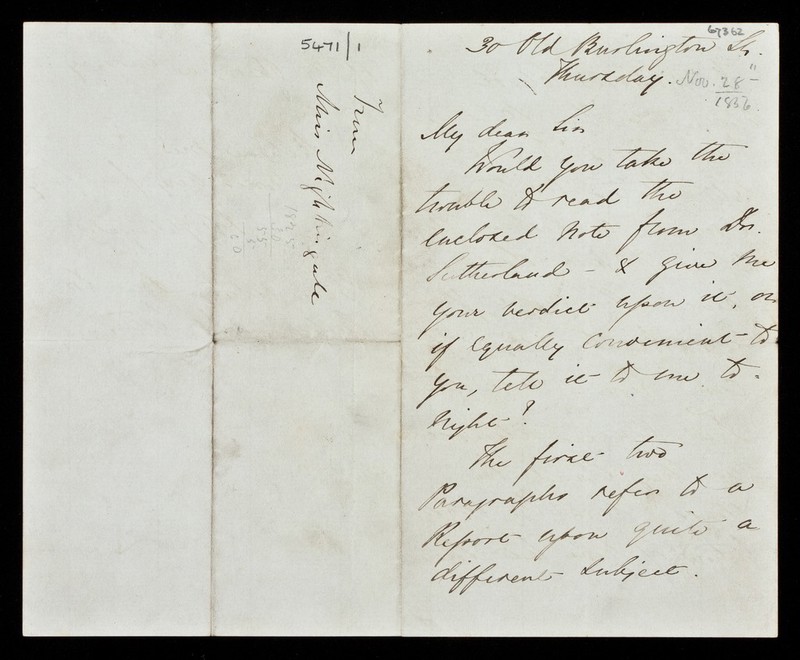 67362
30 Old Burlington St.
Thursday. Nov. 28"
1856.
My dear Sir
Would you take the
trouble to read the
enclosed note from Dr.
Sutherland - & give me
your verdict upon it, or
if equally convenient to
you, tell it to me to-
night?
The first two
Paragraphs refer to a
Report upon quite a
different subject.
5471/1
From
Miss Nightingale